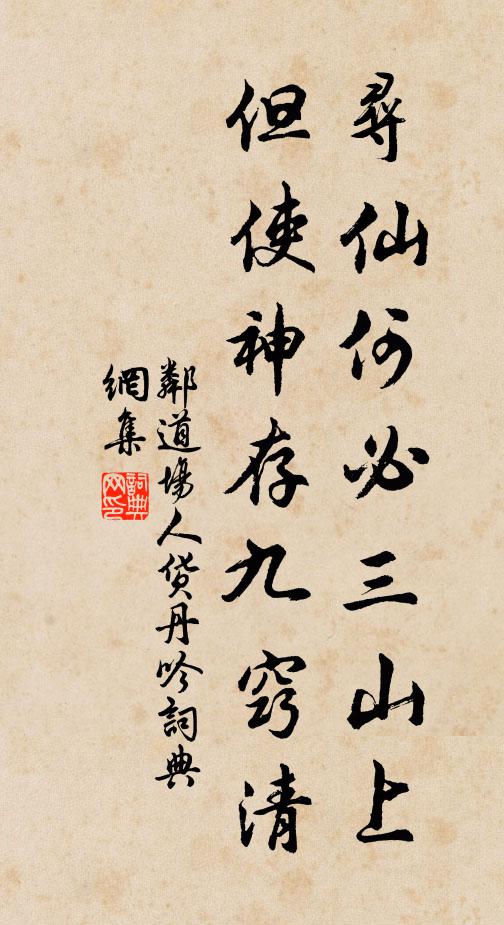 尋仙何必三山上
但使神存九竅清
鄰道場人貨丹吟詞典
網集
詞典
网印